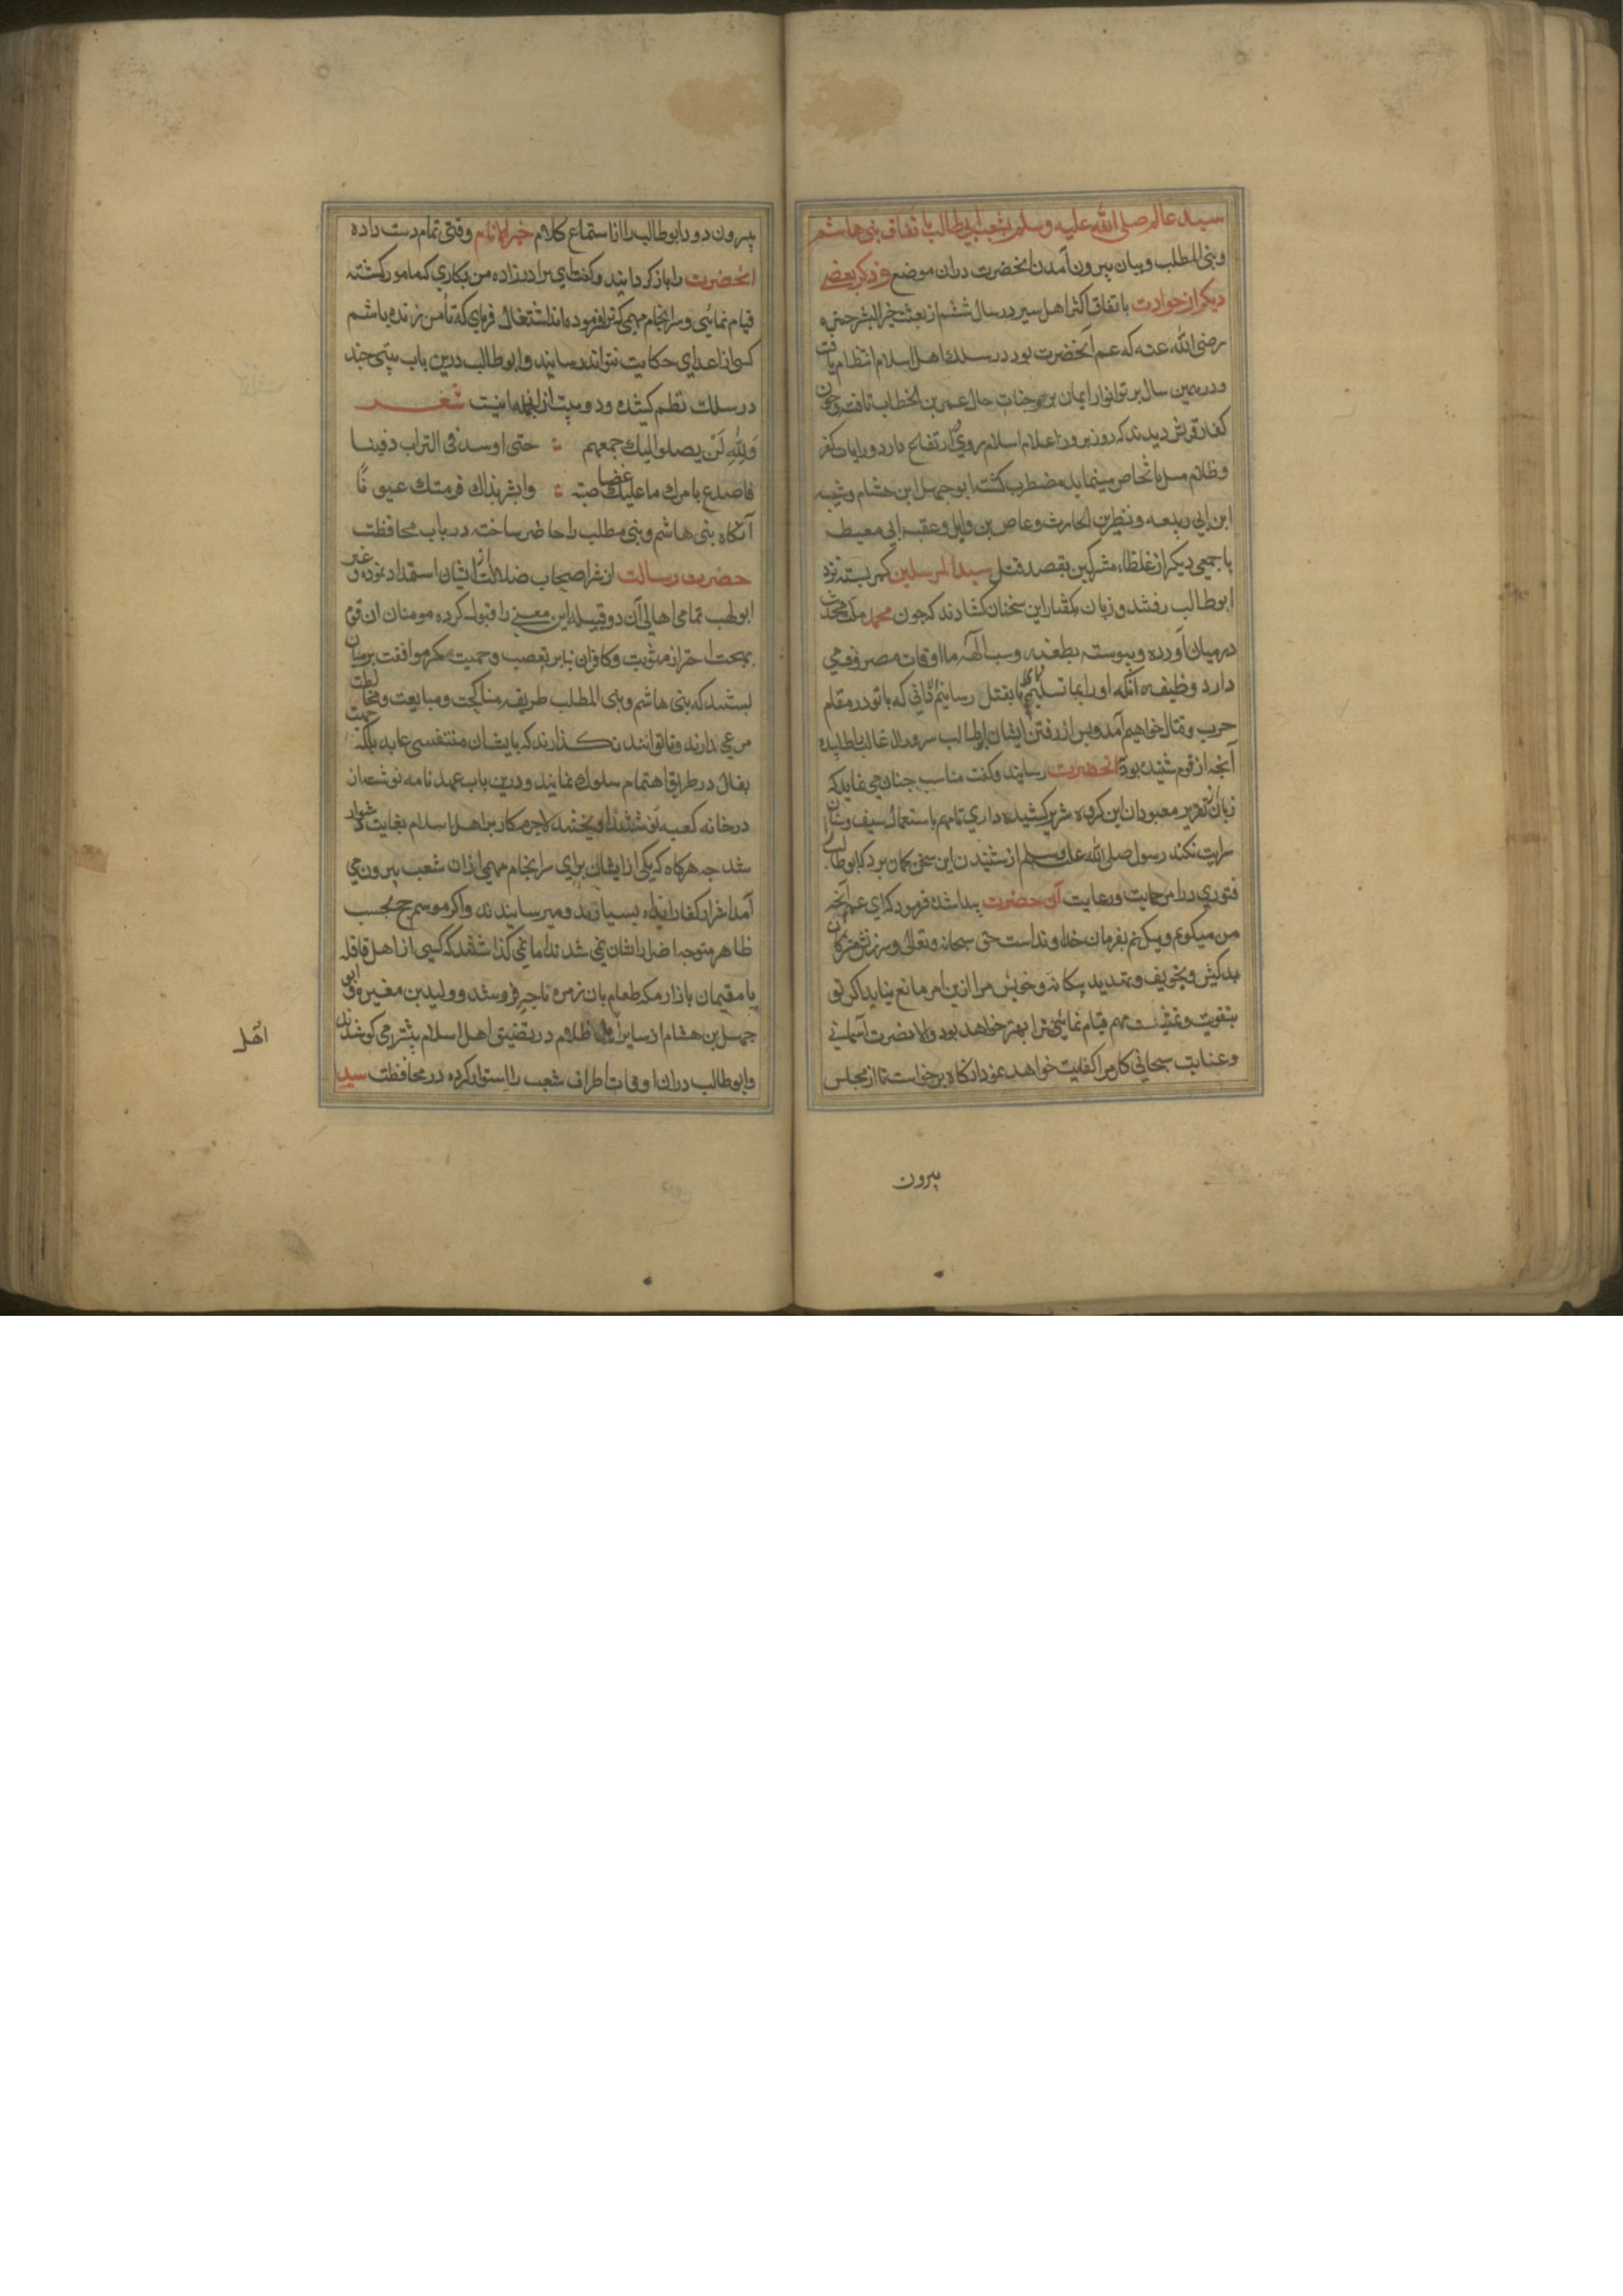 سید عالم صلی الله علیه وسلم بشعب ابی طالب باتفاق بنی هاشم
وبنی المطلب وبیان بیرون آمدن انحضرت دران موضع وذکر بعضی
دیکر از حوادت باتفاق اکثر اهل سیر در سال ششم از بعثت خیر البشر حمزه
رضی الله عنه که عم آنحضرت بود در سلك اهل اسلام انتظام یافت
ودر همین سال پرتو انوار ایمان بر وجنات حال عمر بن الخطاب تافت وچون
کفار قریش دیدند که روز بروز اعلام اسلام روی بارتفاع دارد ورایات کفر
وظلام میل بانخفاض مینماید مضطرب کشته ابو جهل ابن هشام وشیبه
ابن ابی ربیعه ونظر بن الحارث وعاص بن وایل وعقبه ابی معیط
با جمعی دیکر از غلظاء مشرکین بقصد قتل سید المرسلین کمر بسته نزد
ابوطالب رفتند وزبان بکفتار این سخنان کشادند که جون محمد ملت محدث
درمیان آورده وپیوسته بطعنه وسب الهه ما اوقات مصروف می
دارد وظیفه انکه اورا بما تسلیم نمای تا بقتل رسانیم والی که باتو در مقام
حرب وقتال خواهیم آمد وپس از رفتن ایشان ابوطالب سرور ال غالب را طلبیده
آنجه از قوم شنیده بود بانحضرت رسانید وکفت مناسب جنان می نماید که
زبان از تقریر معبودان این کروه شریر کشیده داری تا مهم باستعمال سیف وسنان
سرایت نکند رسول صلی الله علیه وسلم از شنیدن این سخن کمان برد که ابوطالب
فتوری در امر حمایت ورعایت آن حضرت پیدا شده فرمود که ای عم آنجه
من میکویم ومیکنم بفرمان خداوند است حق سبحانه وتعالی وسرزنش مشرکان
بدکیش وتخویف وتهدید بیکانه وخویش مرا ازین امر مانع نیاید اکر تو
بتقویت وتمشیت مهم قیام نمائی ترا بهتر خواهد بود والا نصرت آسمانی
وعنایت سبحانی کار مرا کفایت خواهد نمود انکاه برخواست تا از مجلس
بیرون
بیرون رود ابوطالب را از استماع کلام خیر الانام وقتی تمام دست داده
انحضرت را باز کردانید وکفت ای برادرزاده من بکاری که مامور کشته
قیام نمائی وسرانجام مهمی که ترا فرموده اند اشتغال فرمای که تا من زنده باشم
کسی از اعدای حکایت نتواند رسانید وابوطالب درین باب بیتی جند
در سلك نظم کشیده ودو بیت از انجمله اینست شعــر
ولله لن یصلوا الیك جمعهم ؞ حتی اوسد فی التراب دفینا
فاصدع بامرك ما علیك غضاضة ؞ وابشر بذاك فرمتك عیونا
آنکاه بنی هاشم وبنی مطلب را حاضر ساخته در باب محافظت
حضرت رسالت از شر اصحاب ضلالت از ایشان استمداد نموده وغیر
ابولهب تمامی اهالی آن دو قبیله این معنی را قبول کرده مومنان ان قوم
بجهت احراز مثوبت وکافران بنابر تعصب وحمیت کمر موافقت بر میان
بستند که بنی هاشم وبنی المطلب طریقه مناکحت ومبایعت ومخالطت
مرعی ندارند وتا توانند نکــذارند که بایشان متنفسی حمیت نماید بلکه
بقتال در طریق اهتمام سلوك نمایند ودرین باب عهد نامه نوشته از
در خانه کعبه اویختند لاجرم کار بر اهل اسلام بغایت دشوار
شد جه هرکاه که یکی از ایشان برای سرانجام مهمی ازان شعب بیرون می
آمد اشرار کفار ایذاء بسیار بدو میرسانیدند واکر موسم حج بحسب
ظاهر متوجه اضرار ایشان نمی شدند اما نمی کذاشتند که کسی از اهل قافله
یا مقیمان بازار مکه طعام بان زمره ناجیه فروشند وولید بن مغیره وابو
جهل بن هشام از سایر اهل ظلام در تضییق اهل اسلام بیشتر می کوشیدند
وابوطالب دران اوقات اطراف شعب را استوار کرده در محافظت سید
اهل